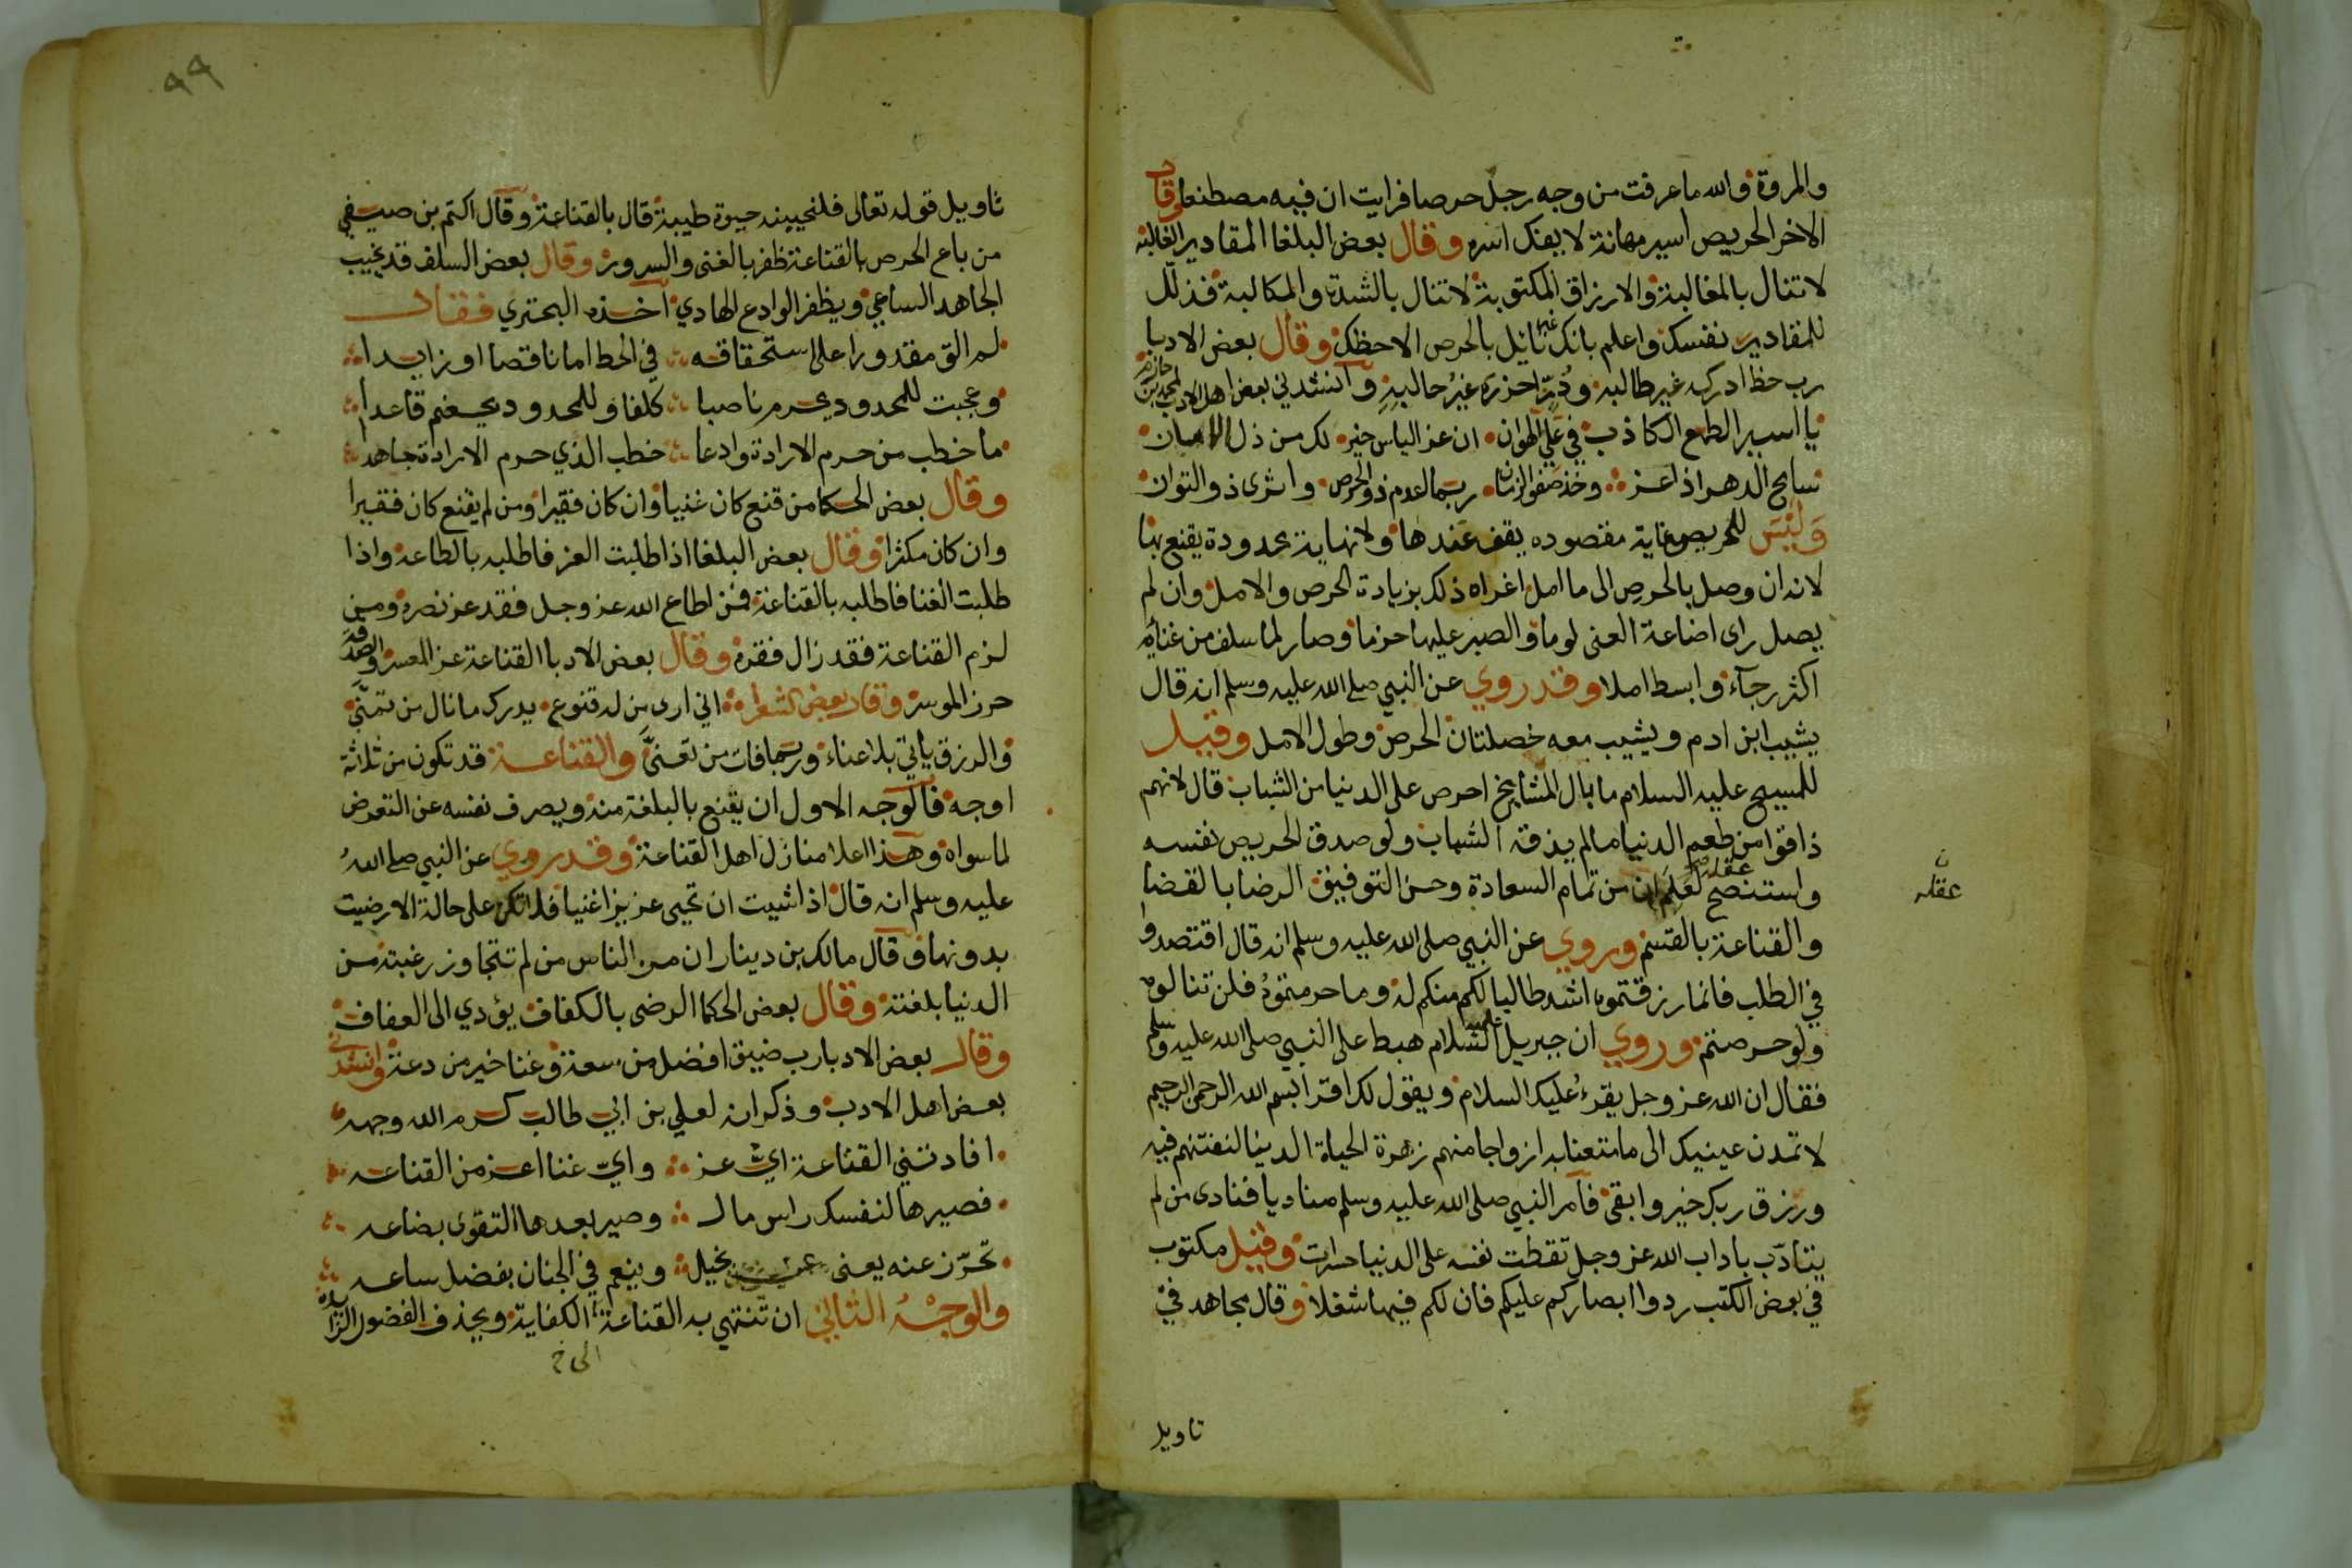 والمروة والله ما عرفت من وجه رجل حرصا فرايت ان فيه مصطنعا وقال
الاخر الحريص اسير مهانة لا يفك اسره وقال بعض البلغا المقادير الغالبة
لا تنال بالمغالبة والارزاق المكتوبة لا تنال بالشدة والمكالبة فذلل
للمقادير نفسك واعلم بانك غير نايل بالحرص الا حظك وقال بعض الادبا
رب حظ ادركه غير طالبه ودر احرزه غير حالبه وانشدني بعض اهل الادب لمحمد بن حازم
يا اسير الطمع الكاذب في غل الهوان ان عز الياس خير لك من ذل الامان
سامح الدهر اذا عز وخذ صفو الزمان ربما اعدم ذو الحرص واثرى ذو التوان
وليس للحريص غاية مقصوده يقف عندها ولا نهاية محدودة يقنع بها
لانه ان وصل بالحرص الى ما امل اغراه ذلك بزيادة الحرص والامل وان لم
يصل راى اضاعة العنى لوما والصبر عليها حزما وصار لما سلف من غنائه
اكثر رجآء وابسط املا وقد روي عن النبي صلى الله عليه وسلم انه قال
يشيب ابن ادم ويشيب معه خصلتان الحرص وطول الامل وقيل
للمسيح عليه السلام ما بال المشايخ احرص على الدنيا من الشباب قال لانهم
ذاقوا من طعم الدنيا ما لم يذقه الشباب ولو صدق الحريص نفسه
واستنصح عقله لعلم ان من تمام السعادة وحسن التوفيق الرضا بالقضا
ن
عقله
والقناعة بالقسم وروي عن النبي صلى الله عليه وسلم انه قال اقتصدوا
في الطلب فانما رزقتموه اشد طالبا لكم منكم له وما حرمتموه فلن تنالوه
ولو حرصتم وروي ان جبريل عليه السلام هبط على النبي صلى الله عليه وسلم
فقال ان الله عز وجل يقرء عليك السلام ويقول لك اقرا بسم الله الرحمن الرحيم
لا تمدن عينيك الى ما متعنا به ازواجا منهم زهرة الحياة الدنيا لنفتنهم فيه
ورزق ربك خير وابقى فامر النبي صلى الله عليه وسلم مناديا فنادى من لم
يتادب باداب الله عز وجل تقطت نفسه على الدنيا حسرات وقيل مكتوب
في بعض الكتب ردوا ابصاركم عليكم فان لكم فيها شغلا وقال مجاهد في
تاويل
٩٩
تاويل قوله تعالى فلنحيينه حيوة طيبة قال بالقناعة وقال اكثم بن صيفي
من باع الحرص بالقناعة ظفر بالغنى والسرور وقال بعض السلف قد يخيب
الجاهد الساعي ويظفر الوادع الهادي اخذه البحتري فقال
لم الق مقدورا على استحقاقه في الحظ اما ناقصا او زايدا
وعجبت للمحدود يحرم ناصبا كلفا وللمجدود يغنم قاعدا
ما خطب من حرم الارادة وادعا خطب الذي حرم الارادة جاهدا
وقال بعض الحكما من قنع كان غنيا وان كان فقيرا ومن لم يقنع كان فقيرا
وان كان مكثرا وقال بعض البلغا اذا طلبت العز فاطلبه بالطاعة واذا
طلبت الغنا فاطلبه بالقناعة فمن اطاع الله عز وجل فقد عز نصره ومن
لزم القناعة فقد زال فقره وقال بعض الادبا القناعة عز المعسر والصدقة
حرز الموسر وقال بعض الشعرا اني ارى من له قنوع يدرك ما نال من تمنى
والرزق ياتي بلا عناء وربما فات من تعنى والقناعة قد تكون من ثلاثة
اوجه فالوجه الاول ان يقنع بالبلغة منه ويصرف نفسه عن التعرض
لما سواه وهذا اعلا منازل اهل القناعة وقد روي عن النبي صلى الله
عليه وسلم انه قال اذا شيت ان تحيى عزيزا غنيا فلا تكن على حالة الا رضيت
بدونها وقال مالك بن دينار ان من الناس من لم تتجاوز رغبته من
الدنيا بلغته وقال بعض الحكما الرضى بالكفاف يؤدي الى العفاف
وقال بعض الادبا رب ضيق افضل من سعة وعنا خير من دعة وانشدني
بعض اهل الادب وذكر انه لعلي بن ابي طالب كرم الله وجهه
افادتني القناعة اي عز واي غنا اعز من القناعه
فصيرها لنفسك راس مال وصير بعدها التقوى بضاعه
تحرز عنه يعنى عن بخيل وينعم في الجنان بفضل ساعه
والوجه الثاني ان تنتهي به القناعة الى الكفاية ويحذف الفضول الزايده
الى خ